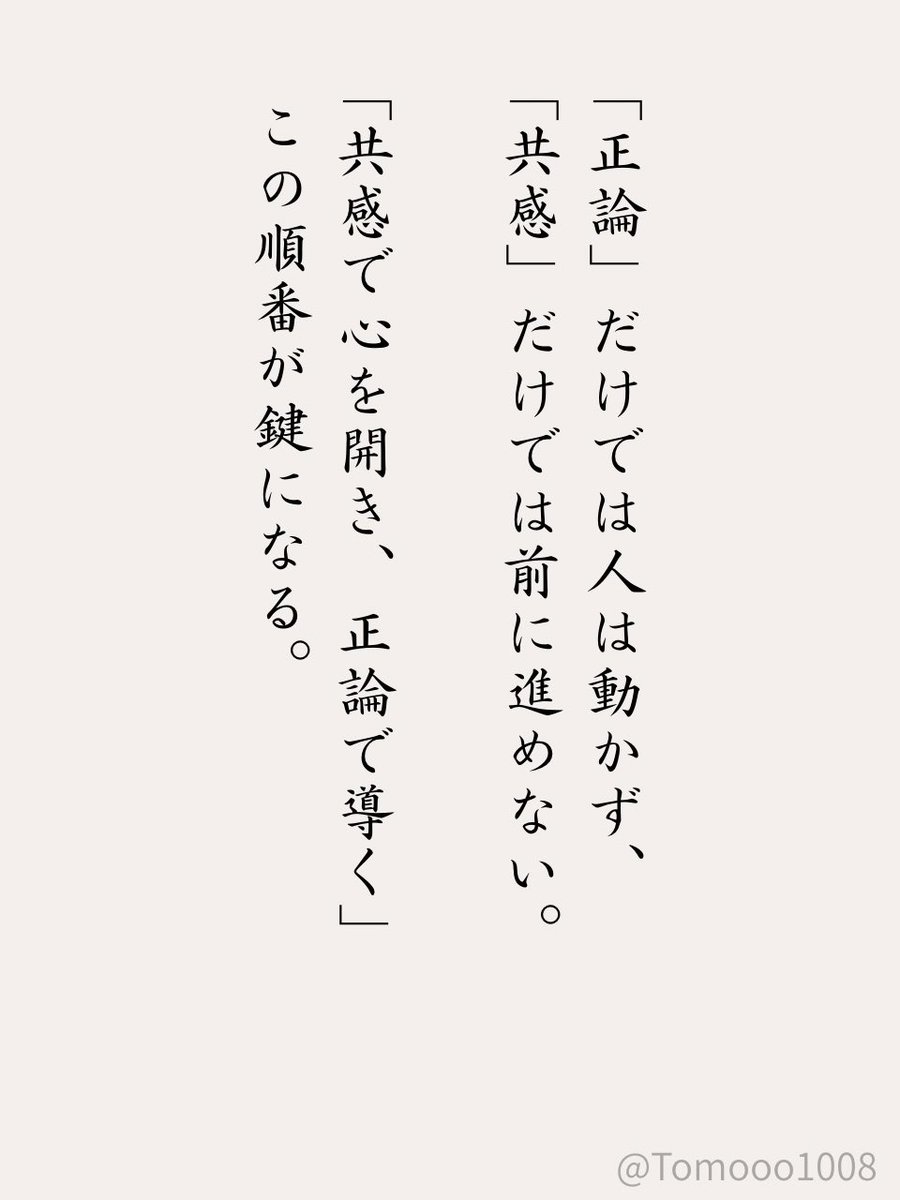 「正論」だけでは人は動かず、
「共感」だけでは前に進めない。
「共感で心を開き、正論で導く」
この順番が鍵になる。
@Tomooo1008